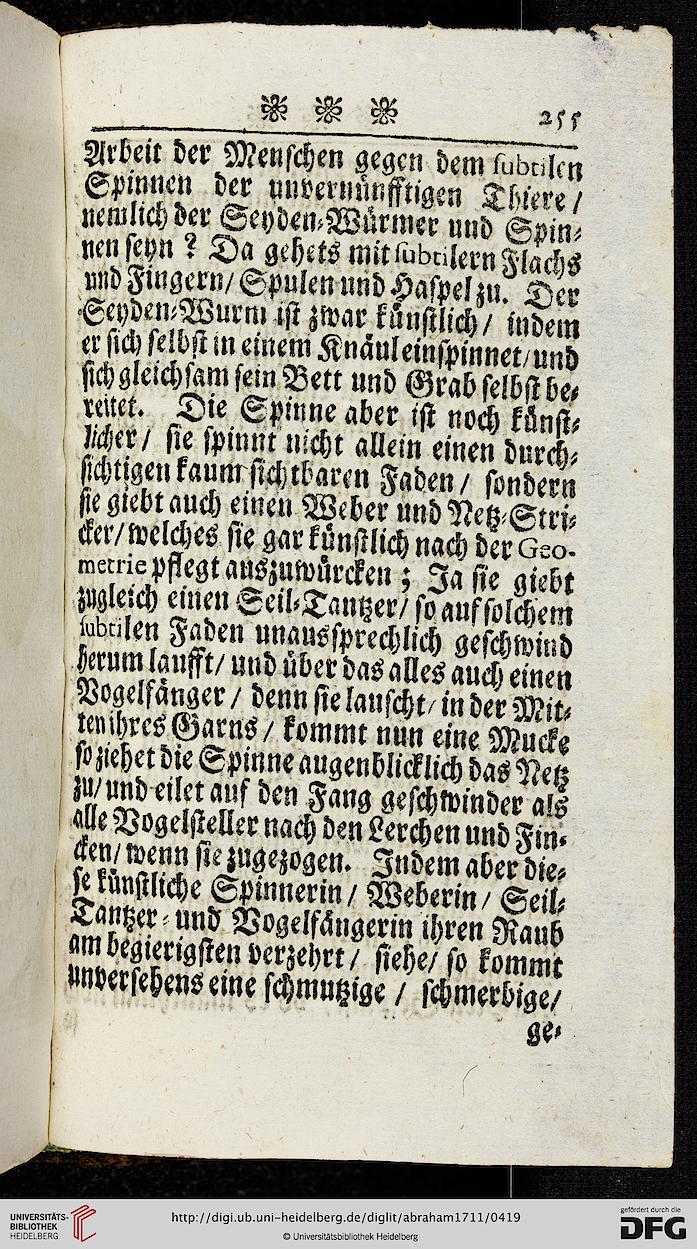 255
Arbeit der Menschen gegen dem subtilen
Spinnen der unvernünfftigen Thiere /
nemlich der Seyden-Würmer und Spin-
nen seyn ? Da gehets mit subtilern Flachs
und Fingern/ Spulen und Haspel zu. Der
Seyden-Wurm ist zwar künstlich / indem
er sich selbst in einem Knäul einspinnet/ und
sich gleichsam sein Bett und Grab selbst be-
reitet. Die Spinne aber ist noch künst-
licher / sie spinnt nicht allein einen durch-
sichtigen kaum sichtbaren Faden / sondern
sie giebt auch einen Weber und Netz-Stri-
cker/ welches sie gar künstlich nach der Geo-
metrie pflegt auszuwürcken ; Ja sie giebt
zugleich einen Seil-Tantzer/ so auf solchem
subtilen Faden unaussprechlich geschwind
herum laufft/ und über das alles auch einen
Vogelfänger / denn sie lauscht/ in der Mit-
ten ihres Garns / kommt nun eine Mucke
so ziehet die Spinne augenblicklich das Netz
zu/ und eilet auf den Fang geschwinder als
alle Vogelsteller nach den Lerchen und Fin-
cken/ wenn sie zugezogen. Indem aber die-
se künstliche Spinnerin / Weberin / Seil-
Tantzer- und Vogelfängerin ihren Raub
am begierigsten verzehrt / siehe/ so kommt
unversehens eine schmutzige / schmerbige/
ge-
UNIVERSITÄTS-
BIBLIOTHEK
HEIDELBERG
http://digi.ub.uni-heidelberg.de/diglit/abraham1711/0419
© Universitätsbibliothek Heidelberg
gefördert durch die
DFG